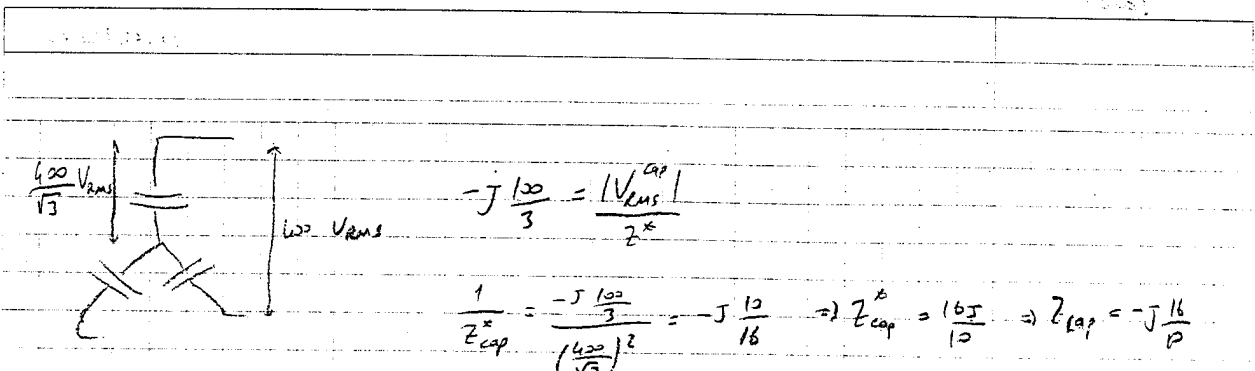 400/√3 V_RMS
400 V_RMS
-J 100/3 = |V_RMS^cap| / Z*
1/Z*_cap = (-J 100/3) / (400/√3)² = -J 10/16 ⇒ Z*_cap = 16J/10 ⇒ Z_cap = -J 16/10